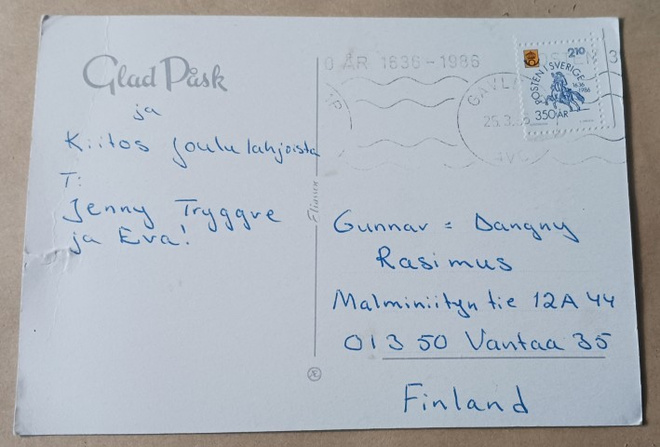 Glad Påsk
ja
Kiitos joululahjoista
T:
Jenny Tryggve
ja Eva!
0 ÅR 1636-1986
GÄVLE
25.3.
210
POSTEN I SVERIGE
1636
1986
350 ÅR
Gunnar = Dangny
Rasimus
Malminiityn tie 12A 44
013 50 Vantaa 35
Finland